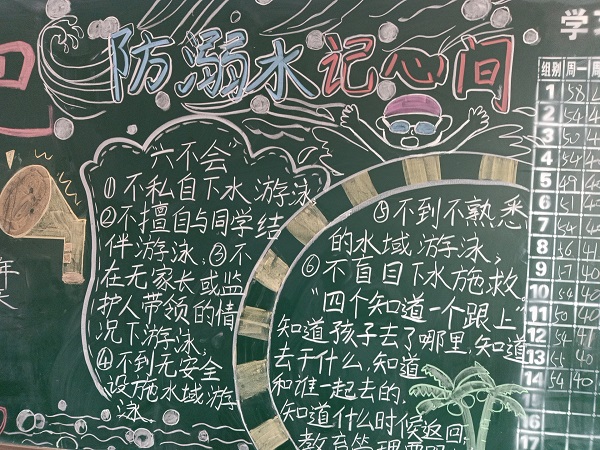 防溺水记心间
"六不会"
①不私自下水游泳
②不擅自与同学结
伴游泳；③不
在无家长或监
护人带领的情
况下游泳；
④不到无安全
设施水域游
泳
⑤不到不熟悉
的水域游泳；
⑥不盲目下水施救。
"四个知道一个跟上"
知道孩子去了哪里，知道
去干什么，知道
和谁一起去的.
知道什么时候返回；
学习
组别 周一 周
1 58
2 54 4
3 50 4
4 54 4
5 49 4
6 51 4
7 54 4
8 56 4
9 57 40
10 54 4
11 50 40
12 54 41
13 55 40
14 54 40
16
17
年